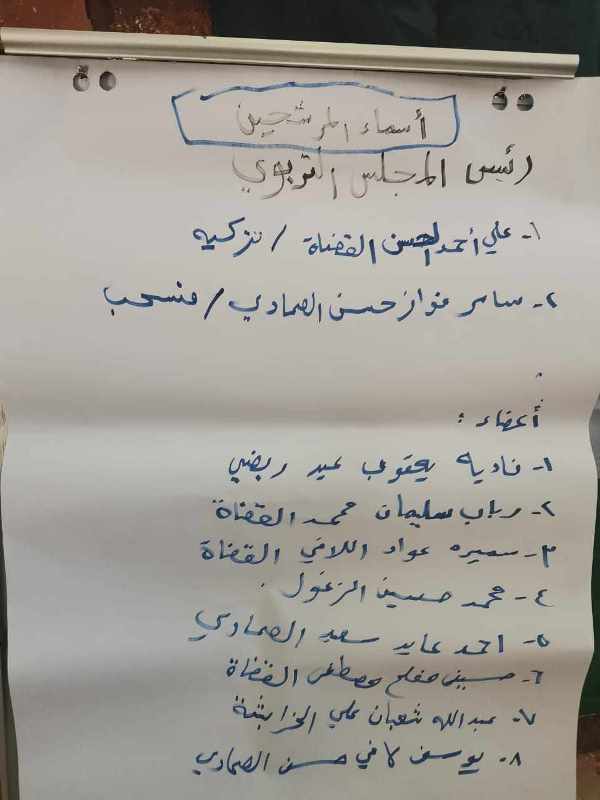 أسماء المرشحين
رئيس المجلس التربوي
١- علي أحمد الحسن القضاة / تزكيه
٢- سامر فواز حسن الصمادي / منسحب
أعضاء :
١- ناديه يعقوب عيد ربضي
٢- رباب سليمان محمد القضاة
٣- سميره عواد اللافي القضاة
٤- محمد حسين الزغول
٥- احمد عايد سعيد الصمادي
٦- حسين مفلح مصطفى القضاة
٧- عبدالله شعبان علي الخزابشة
٨- يوسف كافي حسن الصمادي